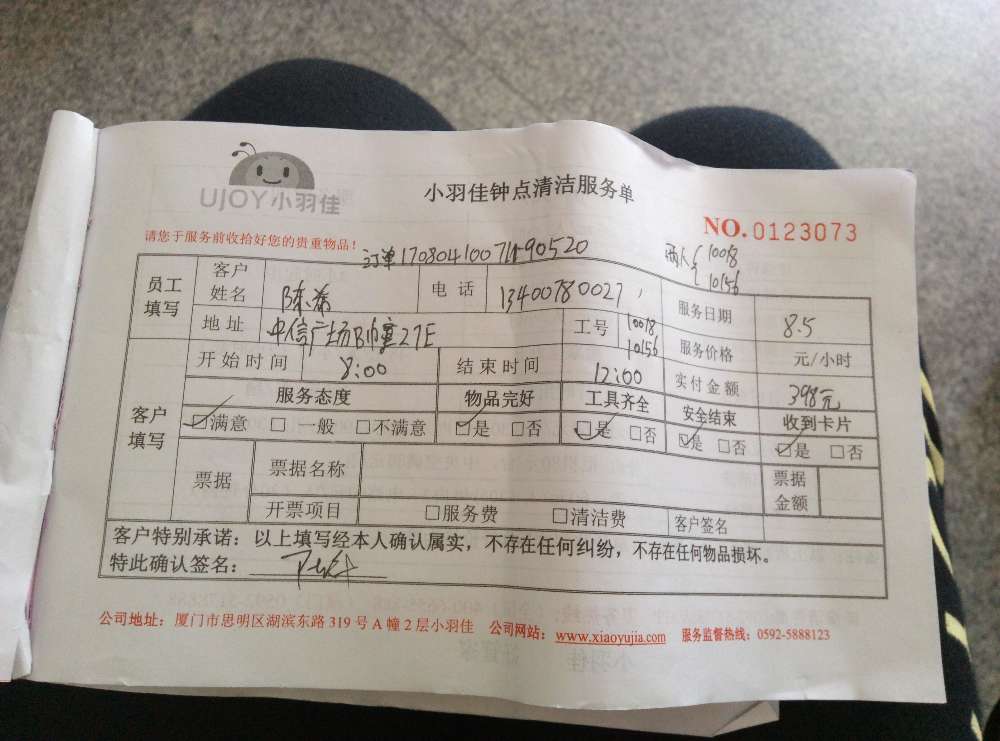 UJOY小羽佳
小羽佳钟点清洁服务单
NO.0123073
请您于服务前收拾好您的贵重物品！
两人{10018
10156
员工填写 客户姓名 陈希 电话 13400780027 服务日期 8.5
地址 中信广场B幢27E 工号 10018 10156 服务价格 元/小时
客户填写 开始时间 8:00 结束时间 12:00 实付金额 398元
服务态度 物品完好 工具齐全 安全结束 收到卡片
☑满意 □一般 □不满意 ☑是 □否 ☑是 □否 ☑是 □否 ☑是 □否
票据 票据名称 票据金额
开票项目 □服务费 □清洁费 客户签名
客户特别承诺：以上填写经本人确认属实，不存在任何纠纷，不存在任何物品损坏。
特此确认签名：
公司地址：厦门市思明区湖滨东路319号A幢2层小羽佳 公司网站：www.xiaoyujia.com 服务监督热线：0592-5888123